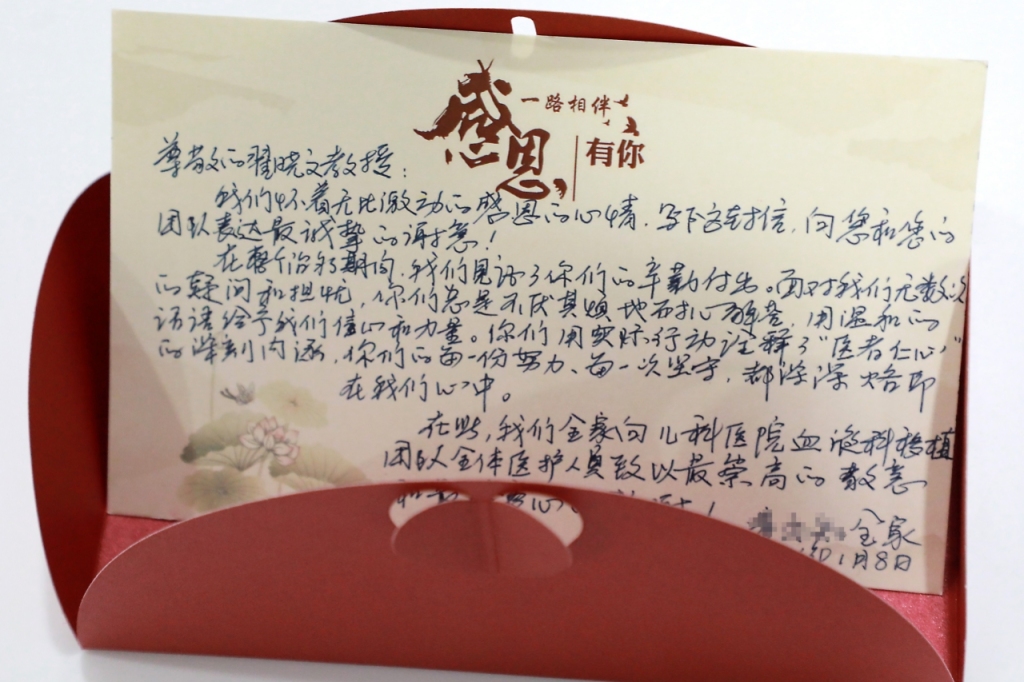 感恩
一路相伴
有你
尊敬的翟晓文教授：
我们怀着无比激动的感恩的心情，写下这封信，向您和您的
团队表达最诚挚的谢意！
在整个治疗期间，我们见证了你们的辛勤付出。面对我们无数次
的疑问和担忧，你们总是不厌其烦地耐心解答，用温和的
话语给予我们信心和力量。你们用实际行动诠释了“医者仁心”
的深刻内涵，你们的每一份努力、每一次坚守，都深深烙印
在我们心中。
在此，我们全家向儿科医院血液科移植
团队全体医护人员致以最崇高的敬意
和
心
！
全家
1月8日